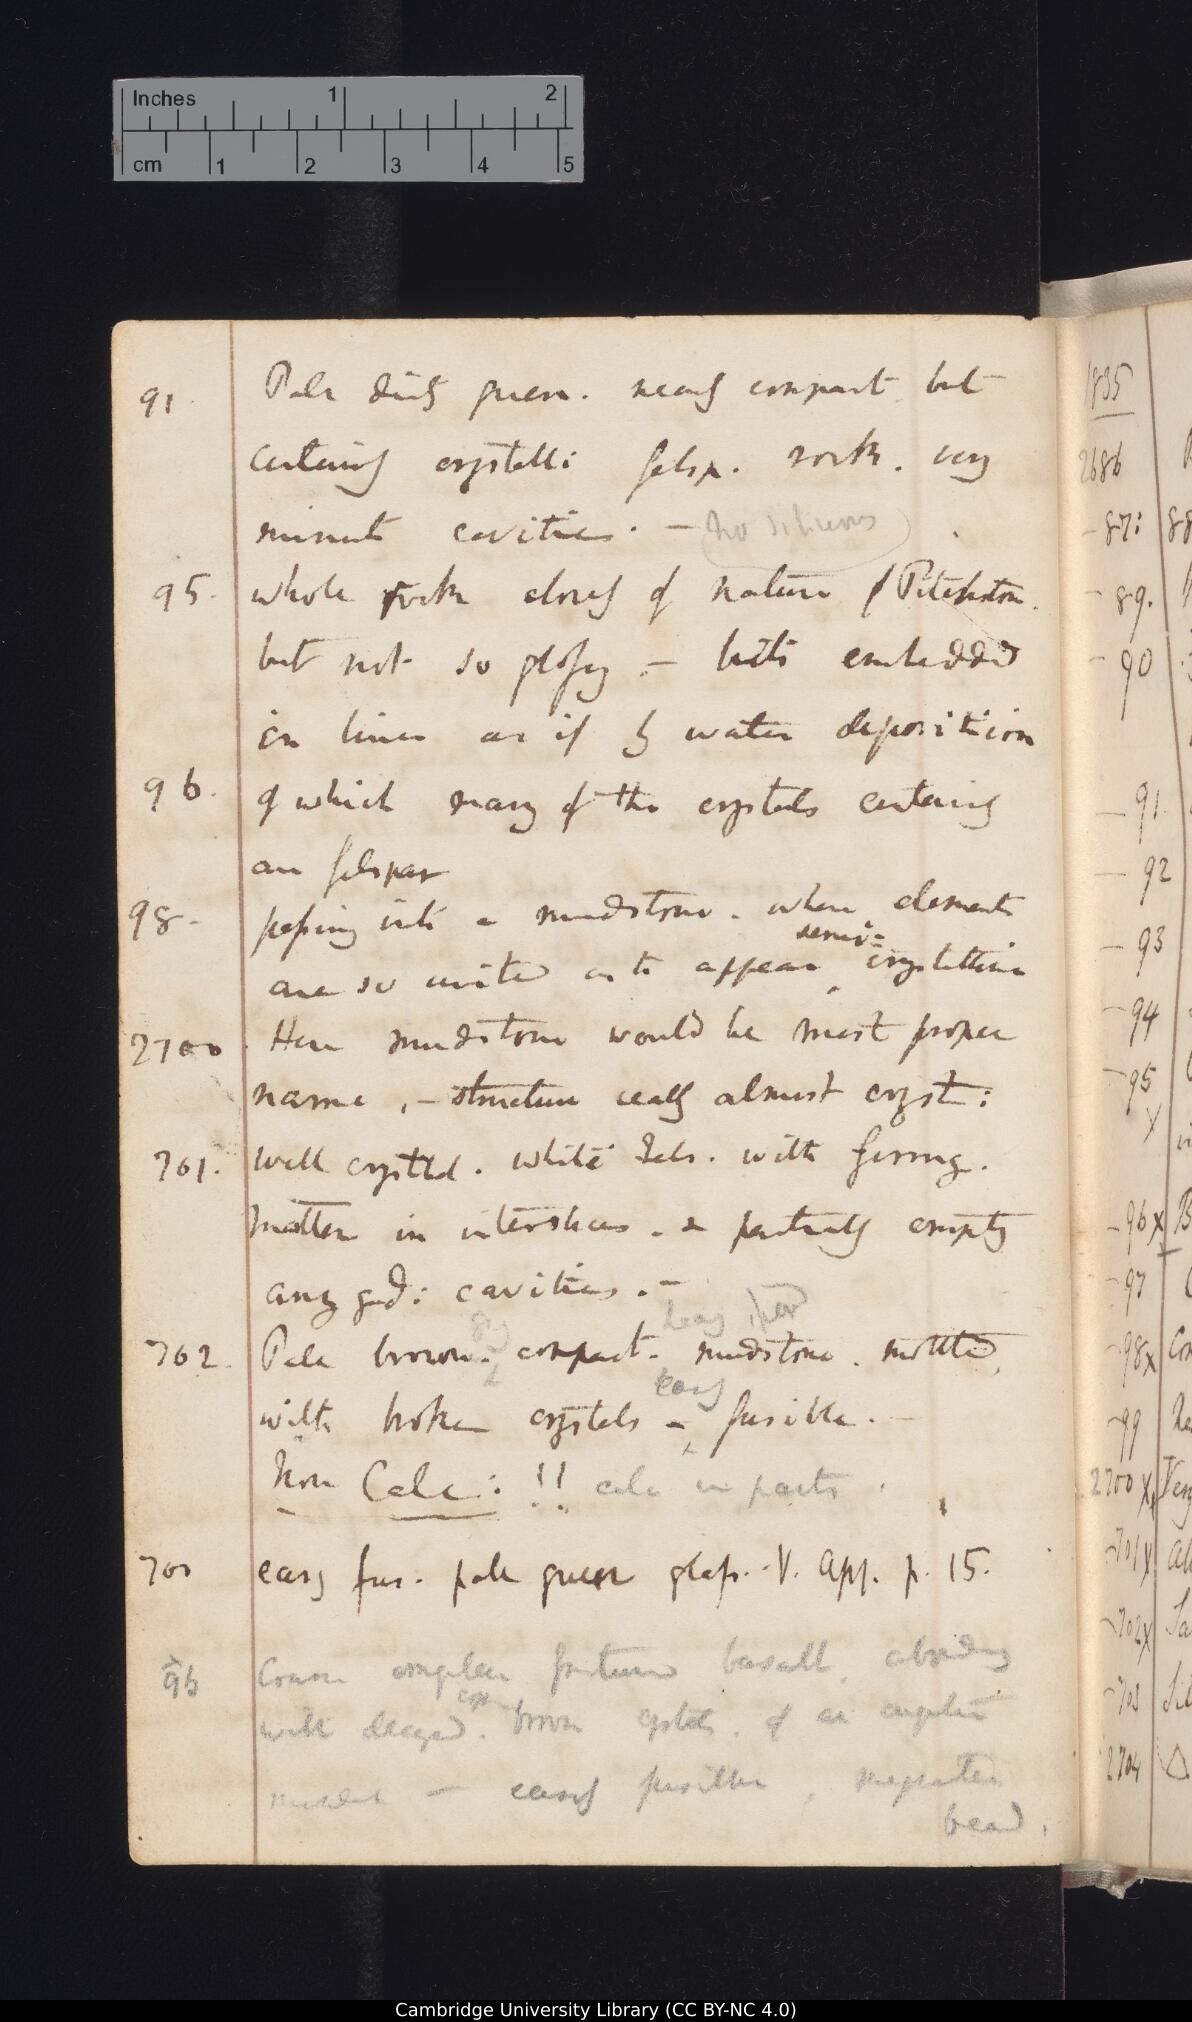 Inches 1 2
cm 1 2 3 4 5
91. Pale dirty green. nearly compact but
certainly crystalli: felsp. rock. very
minute cavities. —
95. whole rock closely of nature of Pitchstone.
but not so glassy — bits embedded
in lines as if by water deposition
96. of which many of the crystals certainly
are felspar
98. passing into a mudstone. where elements
are so united as to appear semi-crystalline
2700 Here mudstone would be most proper
name, — structure really almost cryst:
701. Well crysttd. white Fels. with ferrug.
matter in interstices. & partially empty
amygd: cavities. —
702. Pale brown. compact. mudstone. mottled
with broken crystals — easily fusible. —
Non Calc: !! calc in parts
701 easy fus. pale green glass. V. App. p. 15.
96 basalt. abounding
with brown of an
mineral — easily fusible, magnetic
bead.
1835
2686
— 87: 88
— 89.
— 90
— 91.
— 92
— 93
— 94
— 95
x
— 96 x
— 97
— 98 x
— 99
2700 x
— 701 x
— 702 x
— 703
2704
Cambridge University Library (CC BY-NC 4.0)